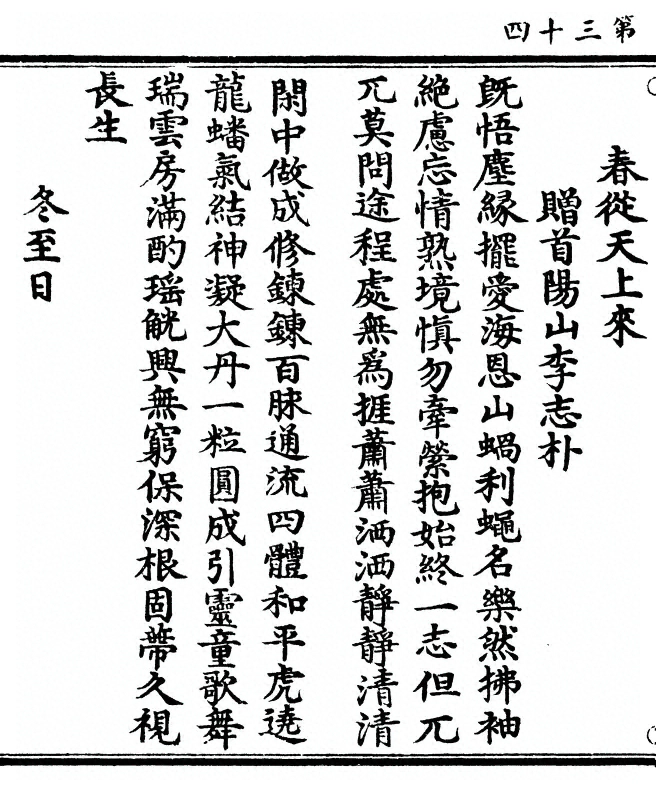 第三十四
春從天上來
贈首陽山李志朴
旣悟塵緣擺愛海恩山蝸利蠅名樂然拂袖
絶慮忘情熟境愼勿牽縈抱始終一志但兀
兀莫問途程處無爲捱蕭蕭洒洒靜靜清清
閑中做成修鍊鍊百脉通流四體和平虎遶
龍蟠氣結神凝大丹一粒圓成引靈童歌舞
瑞雲房滿酌瑤觥興無窮保深根固蔕久視
長生
冬至日